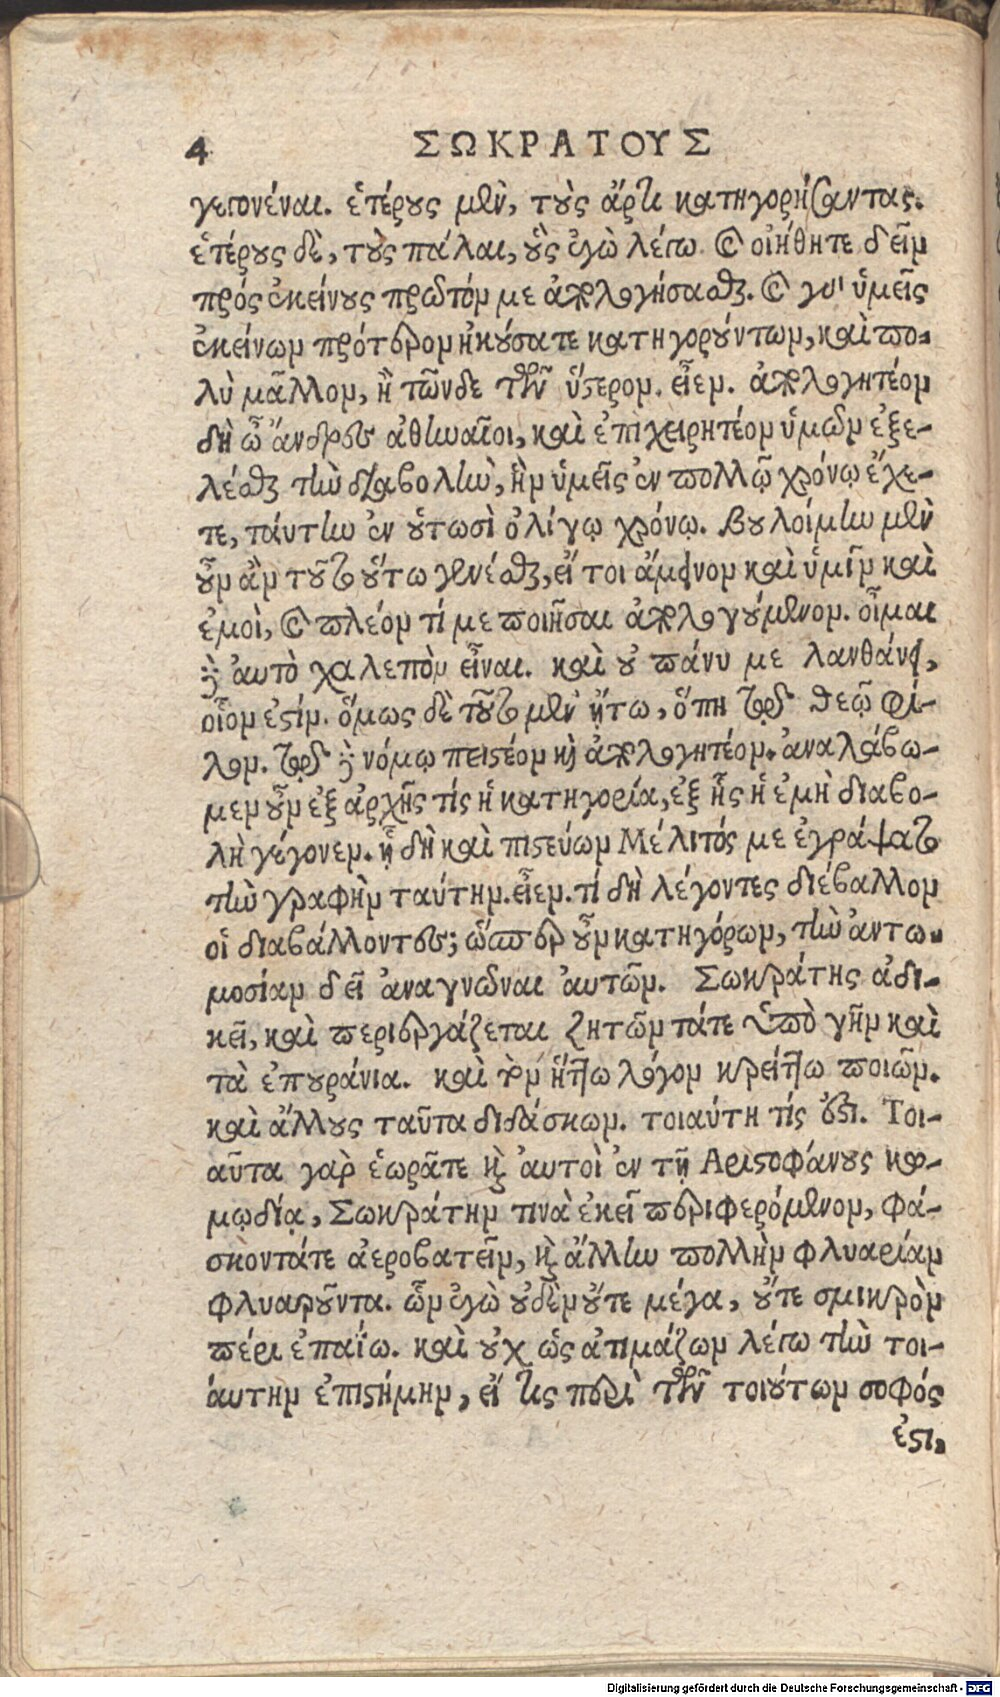 4 ΣΩΚΡΑΤΟΥΣ
γεγονέναι. ἑτέρους μὲν, τοὺς ἄρτι κατηγορήσαντας.
ἑτέρους δὲ, τοὺς πάλαι, οὓς ἐγὼ λέγω. καὶ οἰήθητε δεῖν
πρός ἐκείνους πρῶτόν με ἀπολογήσασθαι. καὶ γὰρ ὑμεῖς
ἐκείνων πρότερον ἠκούσατε κατηγορούντων, καὶ πο-
λὺ μᾶλλον, ἢ τῶνδε τῶν ὕστερον. εἶεν. ἀπολογητέον
δὴ ὦ ἄνδρες ἀθηναῖοι, καὶ ἐπιχειρητέον ὑμῶν ἐξε-
λέσθαι τὴν διαβολὴν, ἣν ὑμεῖς ἐν πολλῷ χρόνῳ ἔχε-
τε, ταύτην ἐν οὑτωσὶ ὀλίγῳ χρόνῳ. βουλοίμην μὲν
οὖν ἂν τοῦτο οὕτω γενέσθαι, εἴ τοι ἄμεινον καὶ ὑμῖν καὶ
ἐμοὶ, καὶ πλέον τί με ποιῆσαι ἀπολογούμενον. οἶμαι
δὲ ἀυτὸ χαλεπὸν εἶναι. καὶ οὐ πάνυ με λανθάνει,
οἷον ἐστίν. ὅμως δὲ τοῦτο μὲν ἤτω, ὅπη τῷ θεῷ φί-
λον. τῷ δὲ νόμῳ πειστέον καὶ ἀπολογητέον. ἀναλάβω-
μεν οὖν ἐξ ἀρχῆς τίς ἡ κατηγορία, ἐξ ἧς ἡ ἐμὴ διαβο-
λὴ γέγονεν. ᾗ δὴ καὶ πιστεύων Μέλιτός με ἐγράψατο
τὴν γραφὴν ταύτην. εἶεν. τί δὴ λέγοντες διέβαλλον
οἱ διαβάλλοντες; ὥσπερ οὖν κατηγόρων, τὴν ἀντω-
μοσίαν δεῖ ἀναγνῶναι ἀυτῶν. Σωκράτης ἀδι-
κεῖ, καὶ περιεργάζεται ζητῶν τάτε ὑπὸ γῆν καὶ
τὰ ἐπουράνια. καὶ τὸν ἥττω λόγον κρείττω ποιῶν.
καὶ ἄλλους ταῦτα διδάσκων. τοιαύτη τίς ἐστι. Τοι-
αῦτα γὰρ ἑωρᾶτε καὶ ἀυτοὶ ἐν τῇ Αριστοφάνους κω-
μῳδίᾳ, Σωκράτην τινὰ ἐκεῖ περιφερόμενον, φά-
σκοντάτε ἀεροβατεῖν, καὶ ἄλλην πολλὴν φλυαρίαν
φλυαροῦντα. ὧν ἐγὼ οὐδὲν οὔτε μέγα, οὔτε σμικρὸν
πέρι ἐπαΐω. καὶ οὐχ ὡς ἀτιμάζων λέγω τὴν τοι-
άυτην ἐπιστήμην, εἴ τις περὶ τῶν τοιούτων σοφός
ἐστι,
Digitalisierung gefördert durch die Deutsche Forschungsgemeinschaft - DFG